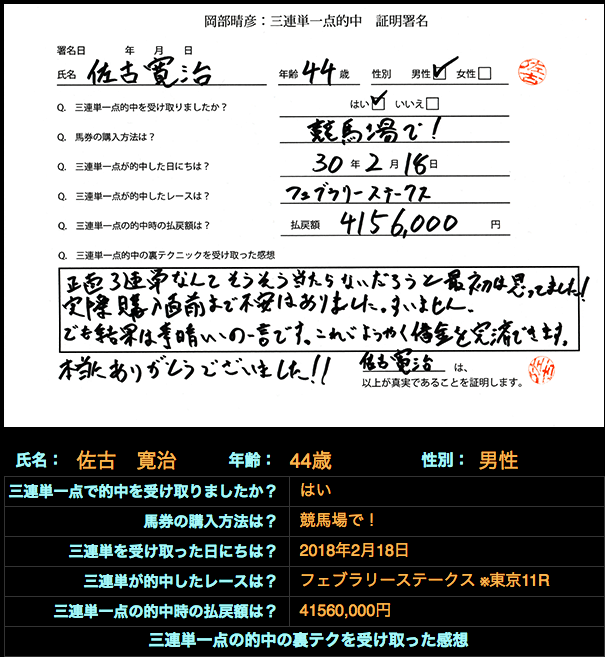 岡部晴彦：三連単一点的中　証明署名
署名日　年　月　日
氏名 佐古寛治 年齢 44 歳 性別 男性☑ 女性□ 佐古
Q. 三連単一点的中を受け取りましたか？ はい☑ いいえ□
Q. 馬券の購入方法は？ 競馬場で！
Q. 三連単一点が的中した日にちは？ 30 年 2 月 18 日
Q. 三連単一点が的中したレースは？ フェブラリーステークス
Q. 三連単一点の的中時の払戻額は？ 払戻額 4156,000 円
Q. 三連単一点的中の裏テクニックを受け取った感想
正直3連単なんてそうそう当たらないだろうと最初は思ってました！
実際購入直前まで不安はありました。すいません。
でも結果は素晴しいの一言です。これでようやく借金を完済できます。
本当にありがとうございました！！ 佐古寛治 は、
以上が真実であることを証明します。 佐古
氏名： 佐古　寛治 年齢： 44歳 性別： 男性
三連単一点で的中を受け取りましたか？ はい
馬券の購入方法は？ 競馬場で！
三連単を受け取った日にちは？ 2018年2月18日
三連単が的中したレースは？ フェブラリーステークス ※東京11R
三連単一点の的中時の払戻額は？ 41560,000円
三連単一点の的中の裏テクを受け取った感想